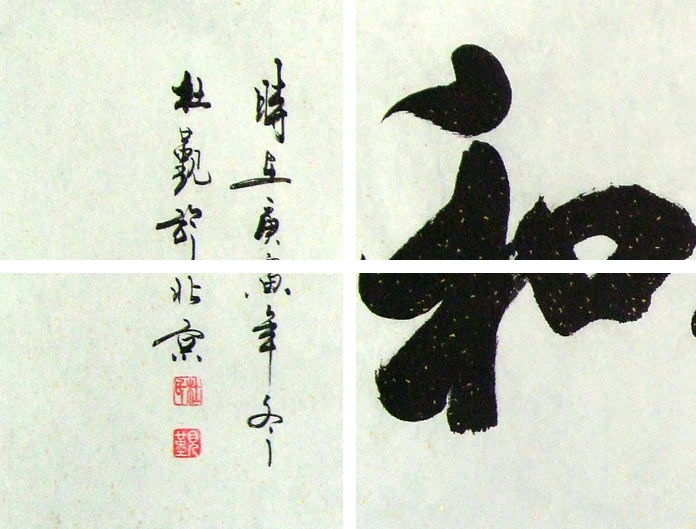 和
時在庚寅年冬
杜覲於北京
覲